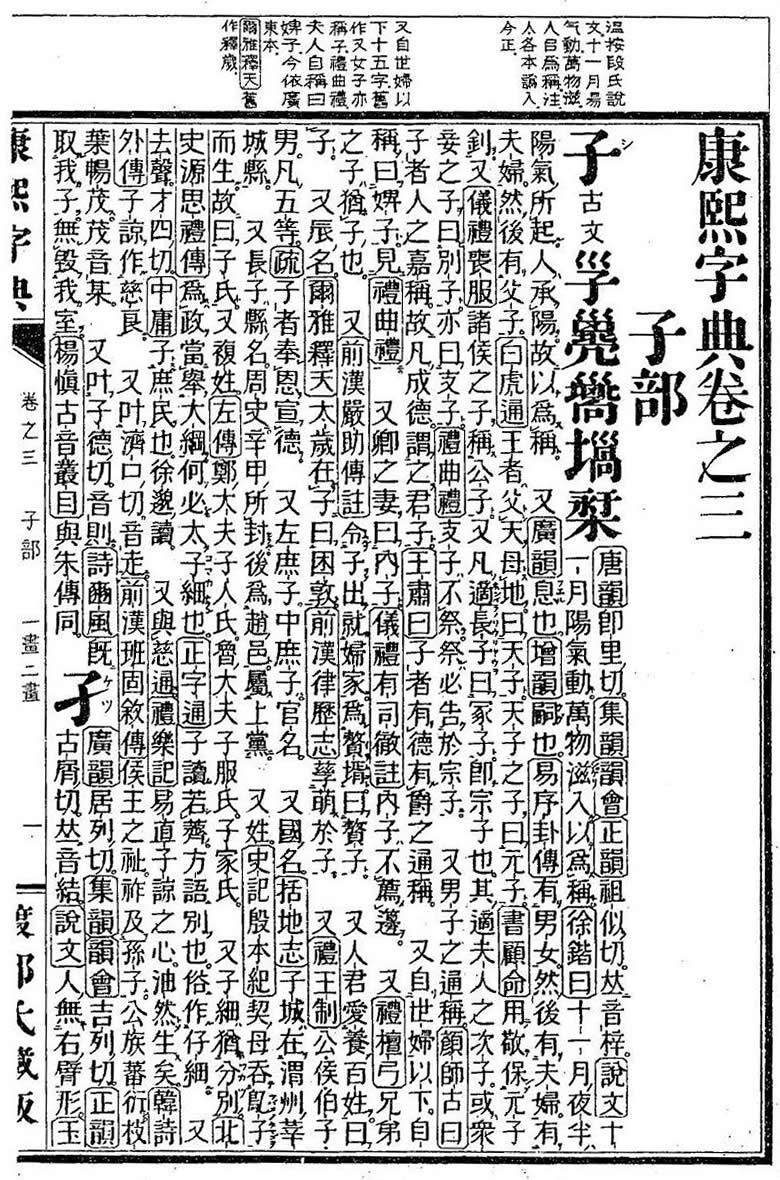 温按段氏說
文十一月昜
气動萬物滋
人㠯爲稱注
亽各本譌入
今正.
又自世婦以
下十五字舊
作又女子亦
稱子禮曲禮
夫人自稱曰
婢子.今依廣
東本.
爾雅釋天舊
作釋歲.
康熙字典卷之三
子部
子 シ 古文
唐韻卽里切。集韻韻會正韻祖似切。𠀤音梓。說文十
一月陽氣動。萬物滋入以爲稱。徐鍇曰十一月夜半。
陽氣所起。人承陽。故以爲稱。 又廣韻息也。增韻嗣也。易序卦傳有男女。然後有夫婦。有
夫婦。然後有父子。白虎通王者父天母地。曰天子。天子之子曰元子。書顧命用敬保元子
釗。又儀禮喪服諸侯之子稱公子。又凡適長子曰冢子。卽宗子也。其適夫人之次子。或衆
妾之子曰別子。亦曰支子。禮曲禮支子不祭。祭必告於宗子。 又男子之通稱。顏師古曰
子者人之嘉稱。故凡成德。謂之君子。王肅曰子者有德有爵之通稱。 又自世婦以下。自
稱曰婢子。見禮曲禮 又卿之妻曰內子。儀禮有司徹註內子不薦籩。 又禮檀弓兄弟
之子。猶子也。 又前漢嚴助傳註令子出就婦家爲贅壻。曰贅子。 又人君愛養百姓。曰
子。 又辰名爾雅釋天太歲在子曰困敦。前漢律歷志孳萌於子。 又禮王制公侯伯子
男。凡五等。疏子者奉恩宣德。 又左庶子。中庶子。官名。 又國名。括地志子城在渭州莘
城縣。 又長子縣名。周史辛甲所封。後爲趙邑。屬上黨。 又姓。史記殷本紀契母吞鳦子
而生。故曰子氏。又複姓。左傳鄭大夫子人氏。魯大夫子服氏。子家氏。 又子細。猶分別。北
史源思禮傳爲政當舉大綱。何必太子細也。正字通子讀若薺。方語別也。俗作仔細。 又
去聲。才四切。中庸子庶民也。徐邈讀。 又與慈通。禮樂記易直子諒之心。油然生矣。韓詩
外傳子諒作慈良。 又叶濟口切。音走。前漢班固敘傳侯王之祉。祚及孫子。公族蕃衍。枝
葉暢茂。茂音某。 又叶子德切。音則。詩豳風旣
取我子。無毀我室。楊愼古音叢目與朱傳同。
孑 ケツ
廣韻居列切。集韻韻會吉列切。正韻
古屑切。𠀤音結。說文人無右臂形。玉
康熙字典
卷之三 子部 一畫二畫
一